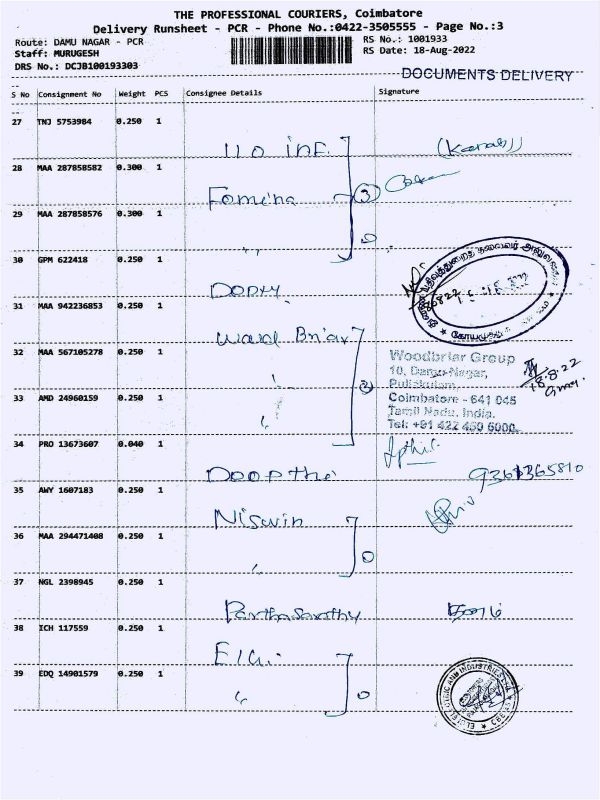 THE PROFESSIONAL COURIERS, Coimbatore
Delivery Runsheet - PCR - Phone No.:0422-3505555 - Page No.:3
Route: DAMU NAGAR - PCR
Staff: MURUGESH
DRS No.: DCJB100193303
RS No.: 1001933
RS Date: 18-Aug-2022
DOCUMENTS DELIVERY
S No Consignment No Weight PCS Consignee Details Signature
27 TNJ 5753984 0.250 1
28 MAA 287858582 0.300 1
Fomina 3
29 MAA 287858576 0.300 1
30 GPM 622418 0.250 1
31 MAA 942236853 0.250 1
Ward Briar
32 MAA 567105278 0.250 1
Woodbriar Group
10, Damu Nagar,
Pulikulam,
18.8.22
33 AMD 24960159 0.250 1
Coimbatore - 641 045
Tamil Nadu. India.
Tel: +91 422 450 6000
34 PRO 13673607 0.040 1
Doopthi
35 AWY 1607183 0.250 1
Niswin
36 MAA 294471408 0.250 1
37 NGL 2398945 0.250 1
Parthasarathy
38 ICH 117559 0.250 1
Elgi
39 EDQ 14901579 0.250 1